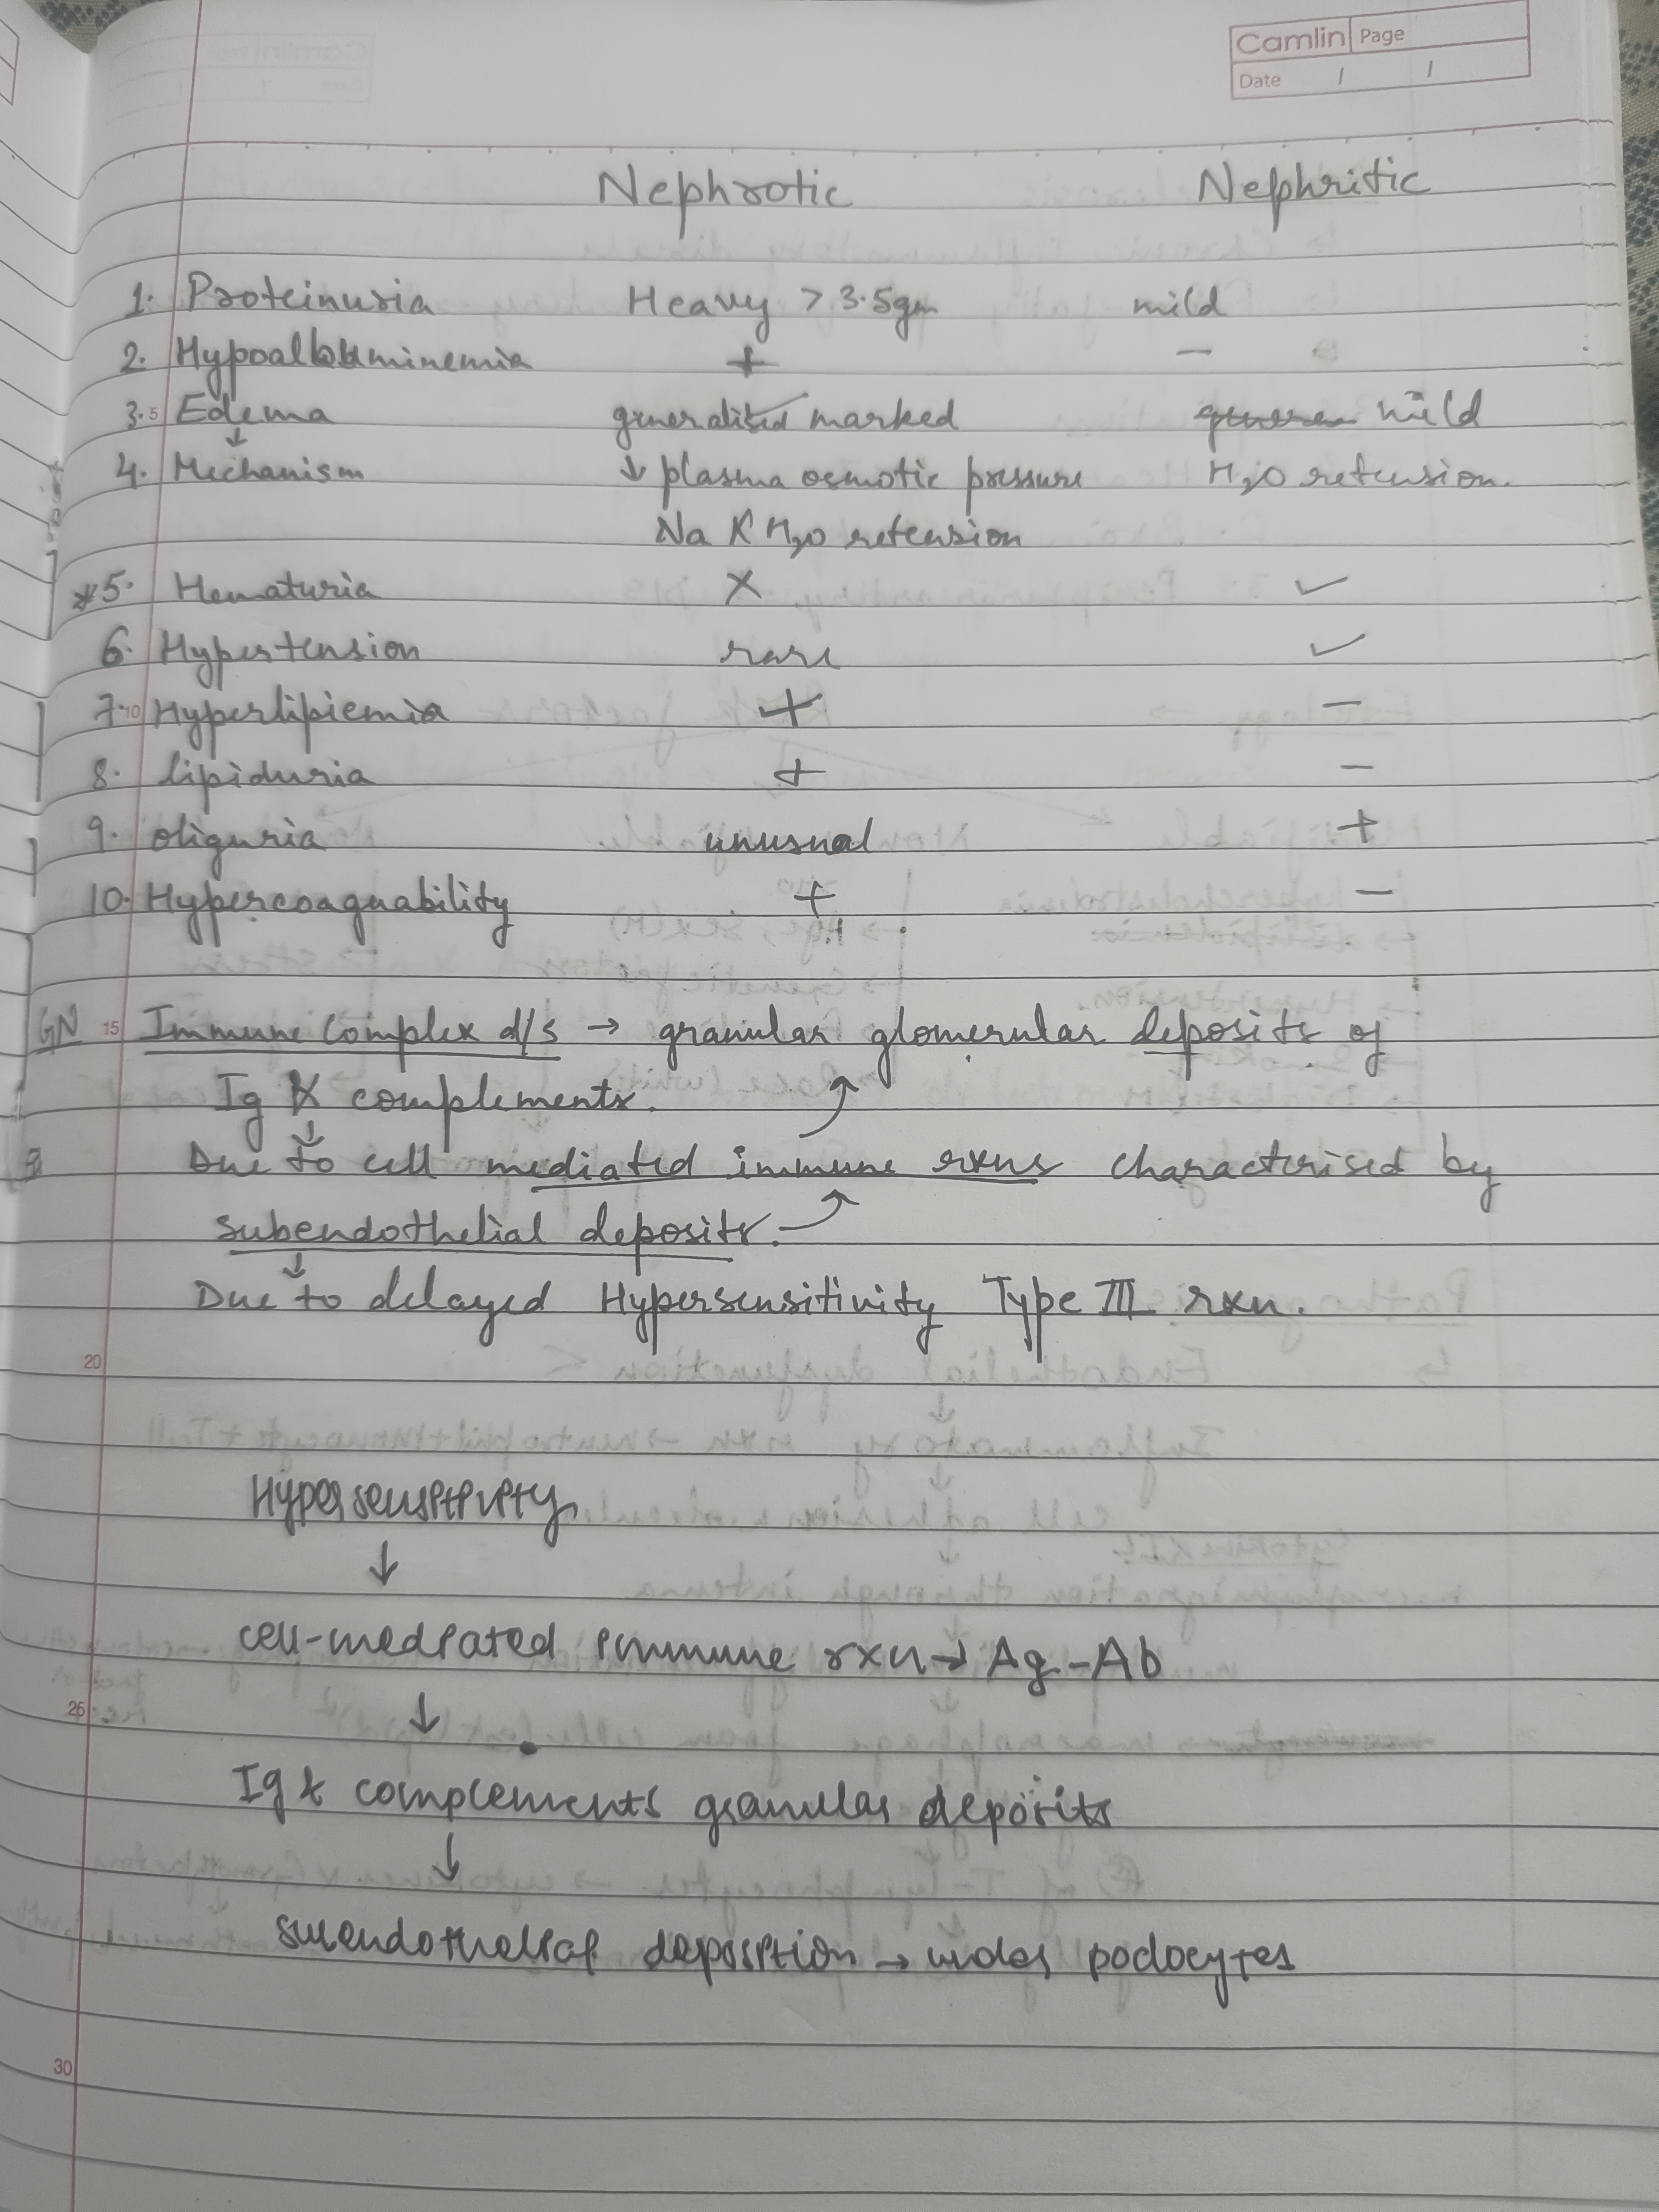 Camlin Page
Date / /
Nephrotic Nephritic
1. Proteinuria Heavy > 3.5gm mild
2. Hypoalbuminemia + −
3. 5 Edema generalised marked mild
↓
4. Mechanism ↓ plasma osmotic pressure H2O retension.
Na & H2O retension
*5. Hematuria × ✓
6. Hypertension rare ✓
7. 10 Hyperlipiemia + −
8. lipiduria + −
9. oliguria unusual +
10. Hypercoaguability + −
GN 15 Immune Complex d/s → granular glomerular deposits of
Ig & complements.
↓
Due to cell mediated immune rxns characterised by
subendothelial deposits.
↓
Due to delayed Hypersensitivity Type III rxn.
20
Hypersensitivity
↓
cell-mediated immune rxn → Ag-Ab
25 ↓
Ig & complements granular deposits
↓
suendothelial deposition → under podocytes
30